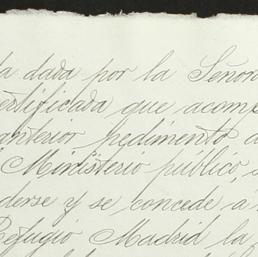 la dada por la Señora
certificada que acomp
anterior pedimento a
Ministerio publico,
derse y se concede á
Refugio Madrid la